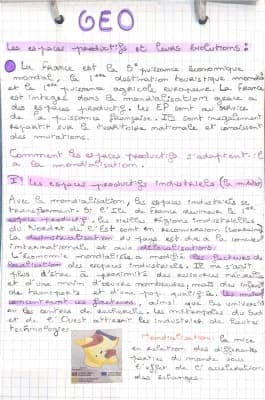 GEO
Les espaces productifs et leurs évolutions :
La France est la 5e puissance économique
mondial, la 1ère destination touristique mondial
et la 1ère puissance agricole européenne. La France
est intégré dans la mondialisation grace a
des espaces productifs. Les EP sont au service
de la puissance française. Ils sont inegalement
repartit sur le territoire nationale et conaissent
des mutations.
Comment les espaces productifs s'adaptent-il
a la mondialisation.
I) Les espaces productifs industriels
Avec la mondialisation, les espaces industriels se
transforment. Si l'Ile de France demeure le 1er
espace productif, les vieilles régions industrielles
du Nord et de l'Est sont en reconversion
La desindustrialisation du pays est due a la concu
internationale et aux délocalisations.
L'économie mondialisée a modifié les facteurs de
localisation des espaces industriels. Il ne s'agit
plus d'être a proximité des ressources
et d'une main d'oeuvre nombreuse, mais des
de transports et d'une pop qualifié. Les
concentrent ces facteurs, ainsi que les universi
ou les centres de recherche. Les métropoles du Sud
et de l'Ouest attirent les industries de hautes
technologies
Mondialisation : la mise
en relation des différentes
parties du monde sous
l'effet de l'acceleration
des échanges.